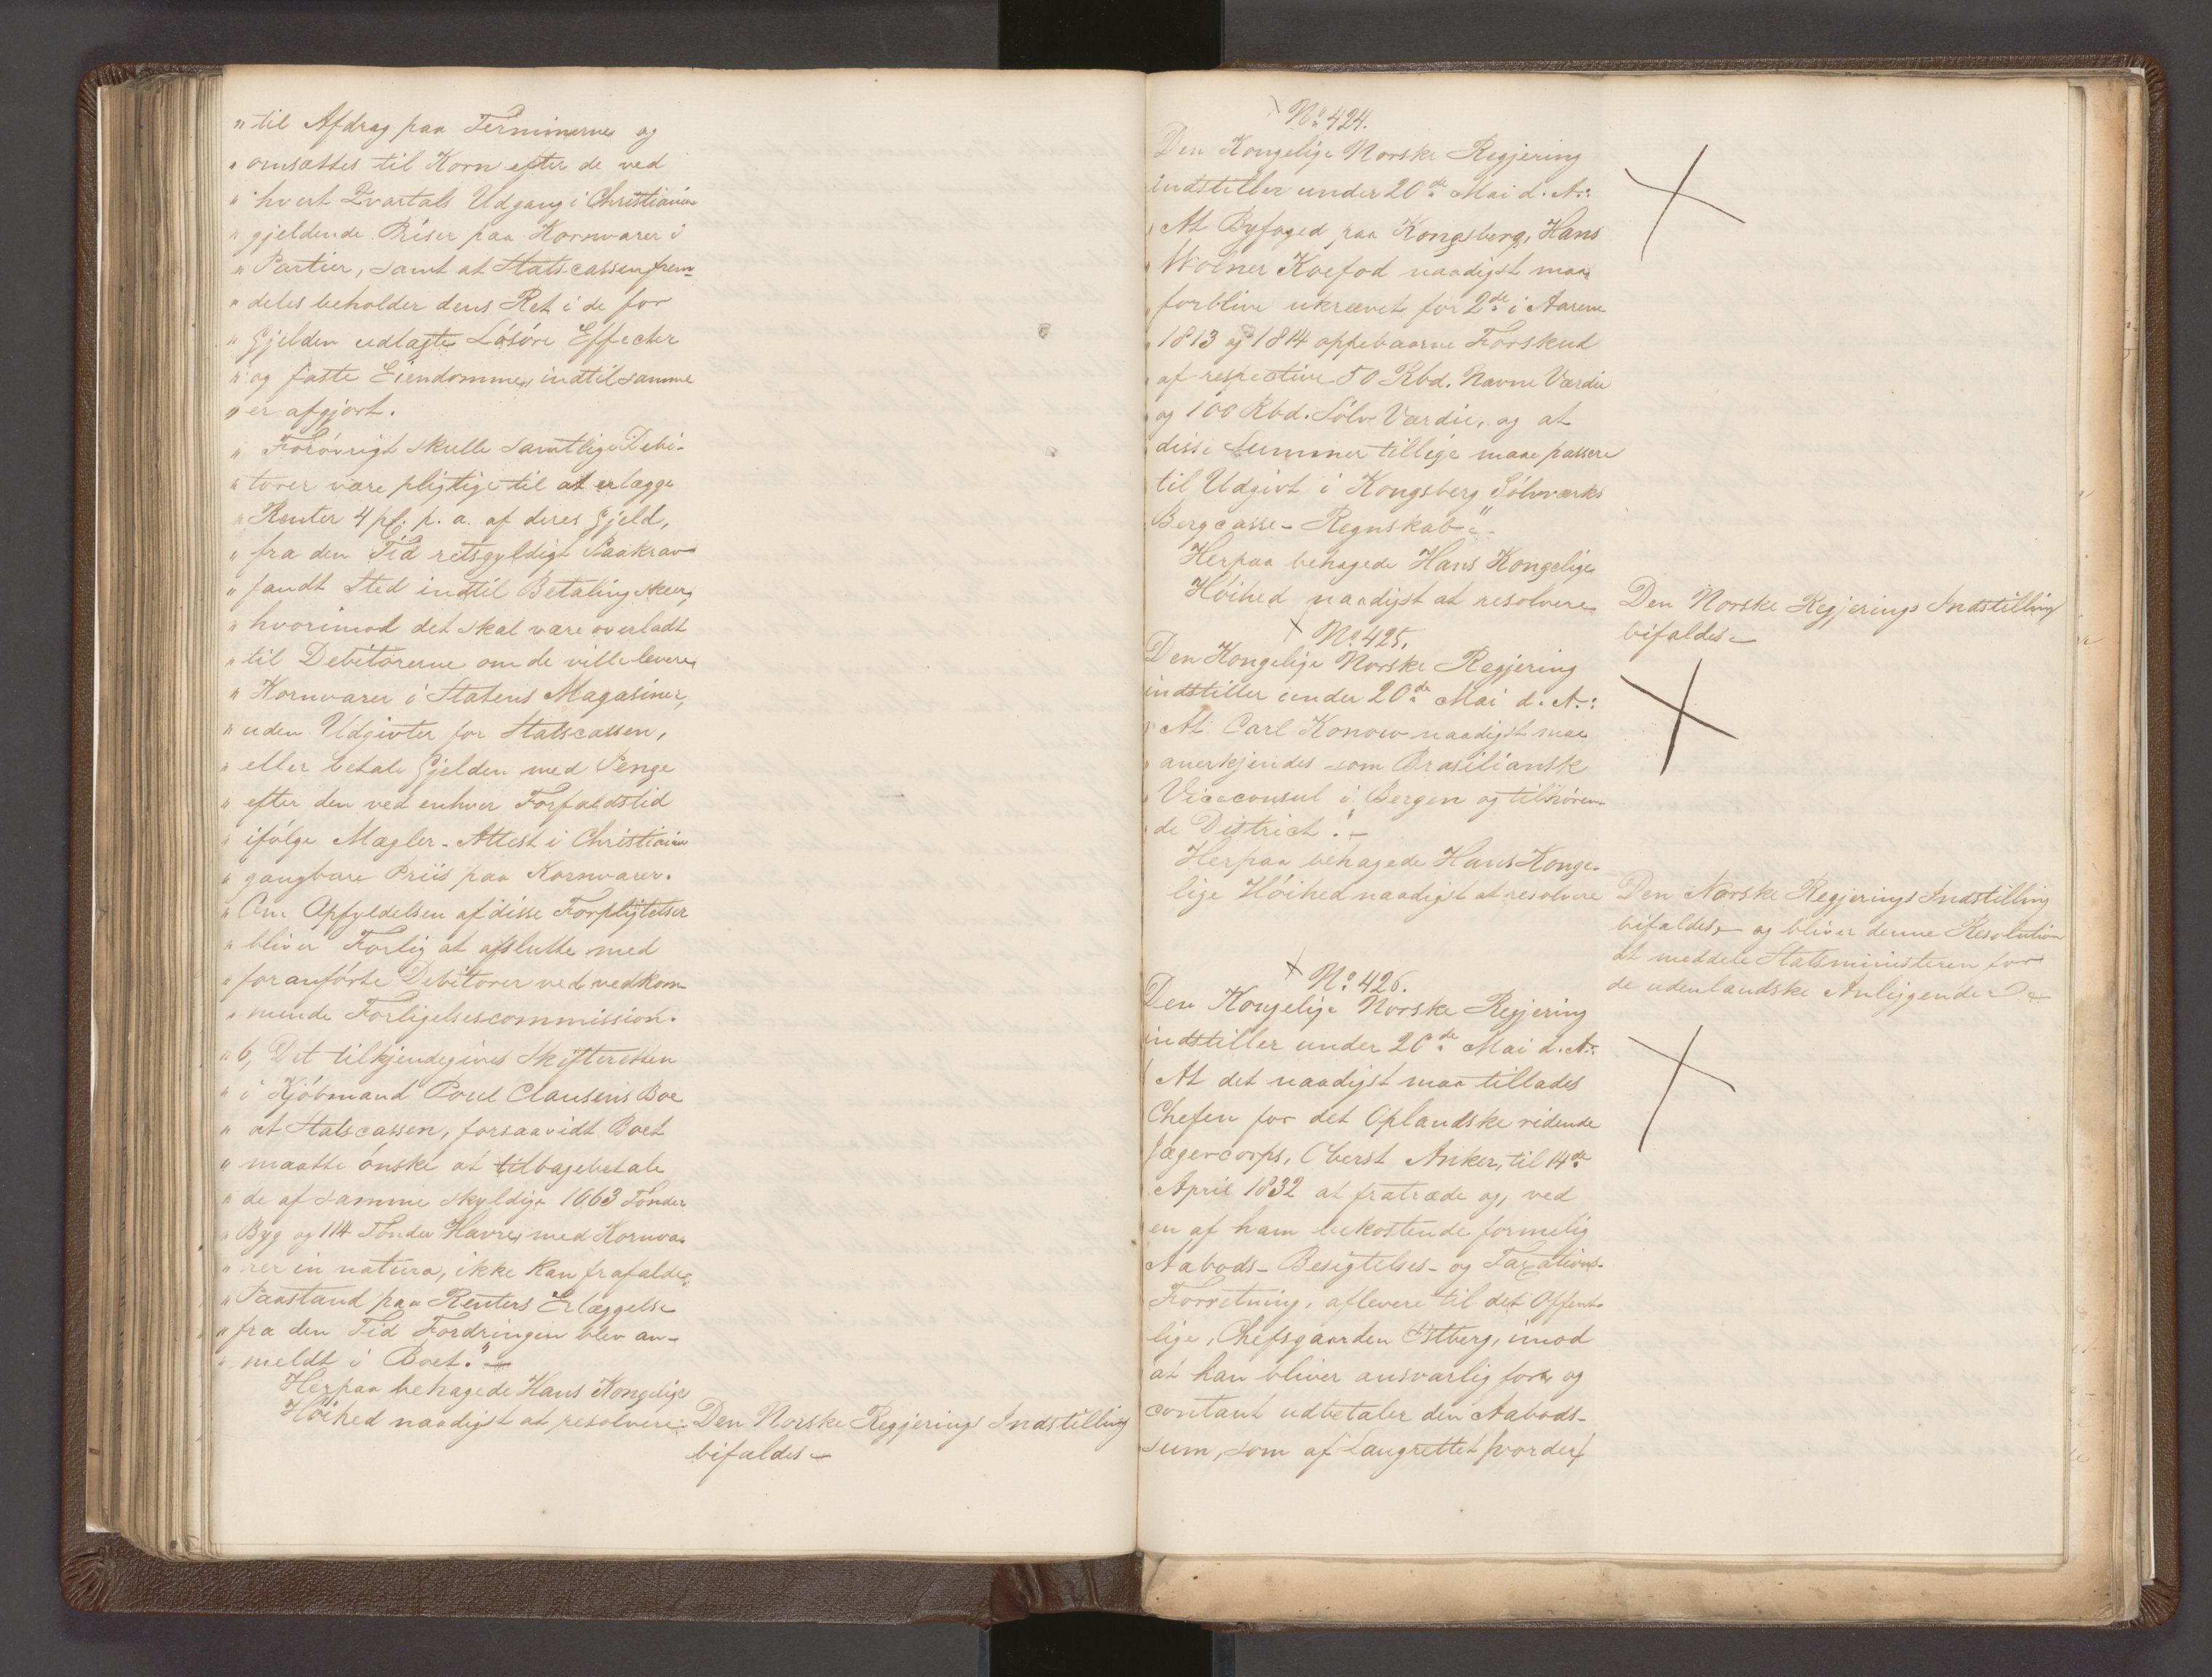 "til Afdrag paa Terminerne og
"omsættes til Korn efter de ved
"hvert Qvartals Udgang i Christiania
"gjeldende Priser paa Kornvarer i
"Partier, samt at Statscassen frem-
"deles beholder dens Ret i de for
"Gjelden udlagte Løsøre Effecter
"og faste Eiendomme, indtil samme
"er afgjort.
"Forøvrigt skulle samtlige Debi-
"torer være pligtige til at erlægge
"Renter 4 pCt. p. a. af deres Gjeld,
"fra den Tid retsgyldigt Paakrav
"fandt Sted indtil Betaling skeer,
"hvorimod det skal være overladt
"til Debitorerne om de ville levere
"Kornvarer i Statens Magasiner,
"uden Udgivter for Statscassen,
"eller betale Gjelden med Penge
"efter den ved enhver Forfaldstid
"ifølge Mægler-Attest i Christiania
"gangbare Priis paa Kornvarer.
"Om Opfyldelsen af disse Forpligtelser
"bliver Forlig at afslutte med
"foranførte Debitorer ved vedkom-
"mende Forligelsescommission.
"6, Det tilkjendegives Skifteretten
"i Kjøbmand Poul Clausens Boe
"at Statscassen, forsaavidt Boet
"maatte ønske at tilbagebetale
"de af samme skyldige 1063 Tønder
"Byg og 114 Tønder Havre, med Kornva-
"rer in natura, ikke kan frafalde
"Paastand paa Renters Erlæggelse
"fra den Tid Fordringen blev an-
"meldt i Boet."-
Herpaa behagede Hans Kongelige
Høihed naadigst at resolvere: Den Norske Regjerings Indstilling
bifaldes-
No 424.
Den Kongelige Norske Regjering
indstiller under 20de Mai d. A.:
"At Byfoged paa Kongsberg, Hans
"Wølner Koefod naadigst maa
"forblive ukrævet for 2de i Aarene
"1813 og 1814 oppebaarne Forskud
"af respective 50 Rbd. Navne Værdie
og 100 Rbd. Sølv Værdie, og at
disse Summer tillige maae passere
til Udgivt i Kongsberg Sølvværks
Bergcasse-Regnskab".-
Herpaa behagede Hans Kongelige
Høihed naadigst at resolvere Den Norske Regjerings Indstilling
bifaldes-
No 425.
Den Kongelige Norske Regjering
indstiller under 20de Mai d. A.:
"At Carl Konow naadigst maa
"anerkjendes som Brasiliansk
"Viceconsul i Bergen og tilhøren-
de District".-
Herpaa behagede Hans Konge-
lige Høihed naadigst at resolvere Den Norske Regjerings Indstilling
bifaldes, og bliver denne Resolution
at meddele Statsministeren for
de udenlandske Anliggender-
No 426.
Den Kongelige Norske Regjering
indstiller under 20de Mai d. A.:
"At det naadigst maa tillades
Chefen for det Oplandske ridende
Jægercorps, Oberst Anker, til 14de
April 1832 at fratræde og, ved
en af ham bekostende formelig
Aabods-Besigtelses- og Taxations-
Forretning, aflevere til det Offent-
lige, Chefsgaarden Østberg, imod
at han bliver ansvarlig for og
contant udbetaler den Aabods-
sum, som af Laugrettet vorder